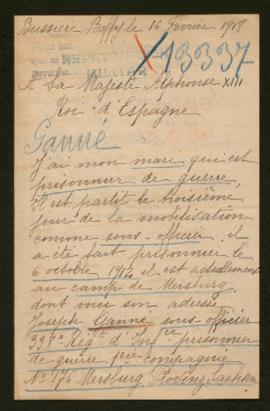 Bussière Boffy le 16 Février 1918
X 13337
A Sa Majesté Alphonse XIII
Roi d'Espagne
Ganné
J'ai mon mari qui est
prisonnier de guerre,
il est partit le troisième
jour de la mobilisation
comme sous-officier, il
a été fait prisonnier le
6 octobre 1914, il est actuellement
au camp de Mersburg
dont voici son adresse
Joseph Ganné sous-officier
337e Régt d'Infrie prisonnier
de guerre 1re compagnie
No 176 Mersburg Provinz Sachsen